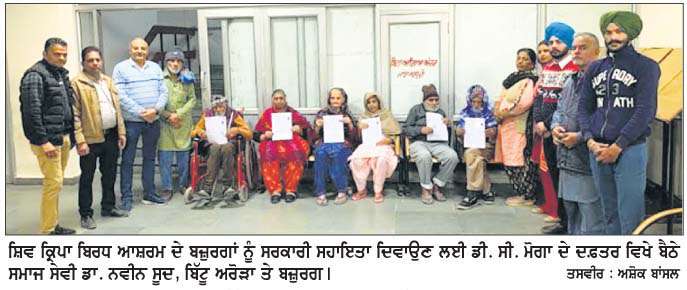 SUPERDRY
ਸ਼ਿਵ ਕ੍ਰਿਪਾ ਬਿਰਧ ਆਸ਼ਰਮ ਦੇ ਬਜ਼ੁਰਗਾਂ ਨੂੰ ਸਰਕਾਰੀ ਸਹਾਇਤਾ ਦਿਵਾਉਣ ਲਈ ਡੀ. ਸੀ. ਮੋਗਾ ਦੇ ਦਫ਼ਤਰ ਵਿਖੇ ਬੈਠੇ
ਸਮਾਜ ਸੇਵੀ ਡਾ. ਨਵੀਨ ਸੂਦ, ਬਿੱਟੂ ਅਰੋੜਾ ਤੇ ਬਜ਼ੁਰਗ।
ਤਸਵੀਰ : ਅਸ਼ੋਕ ਬਾਂਸਲ